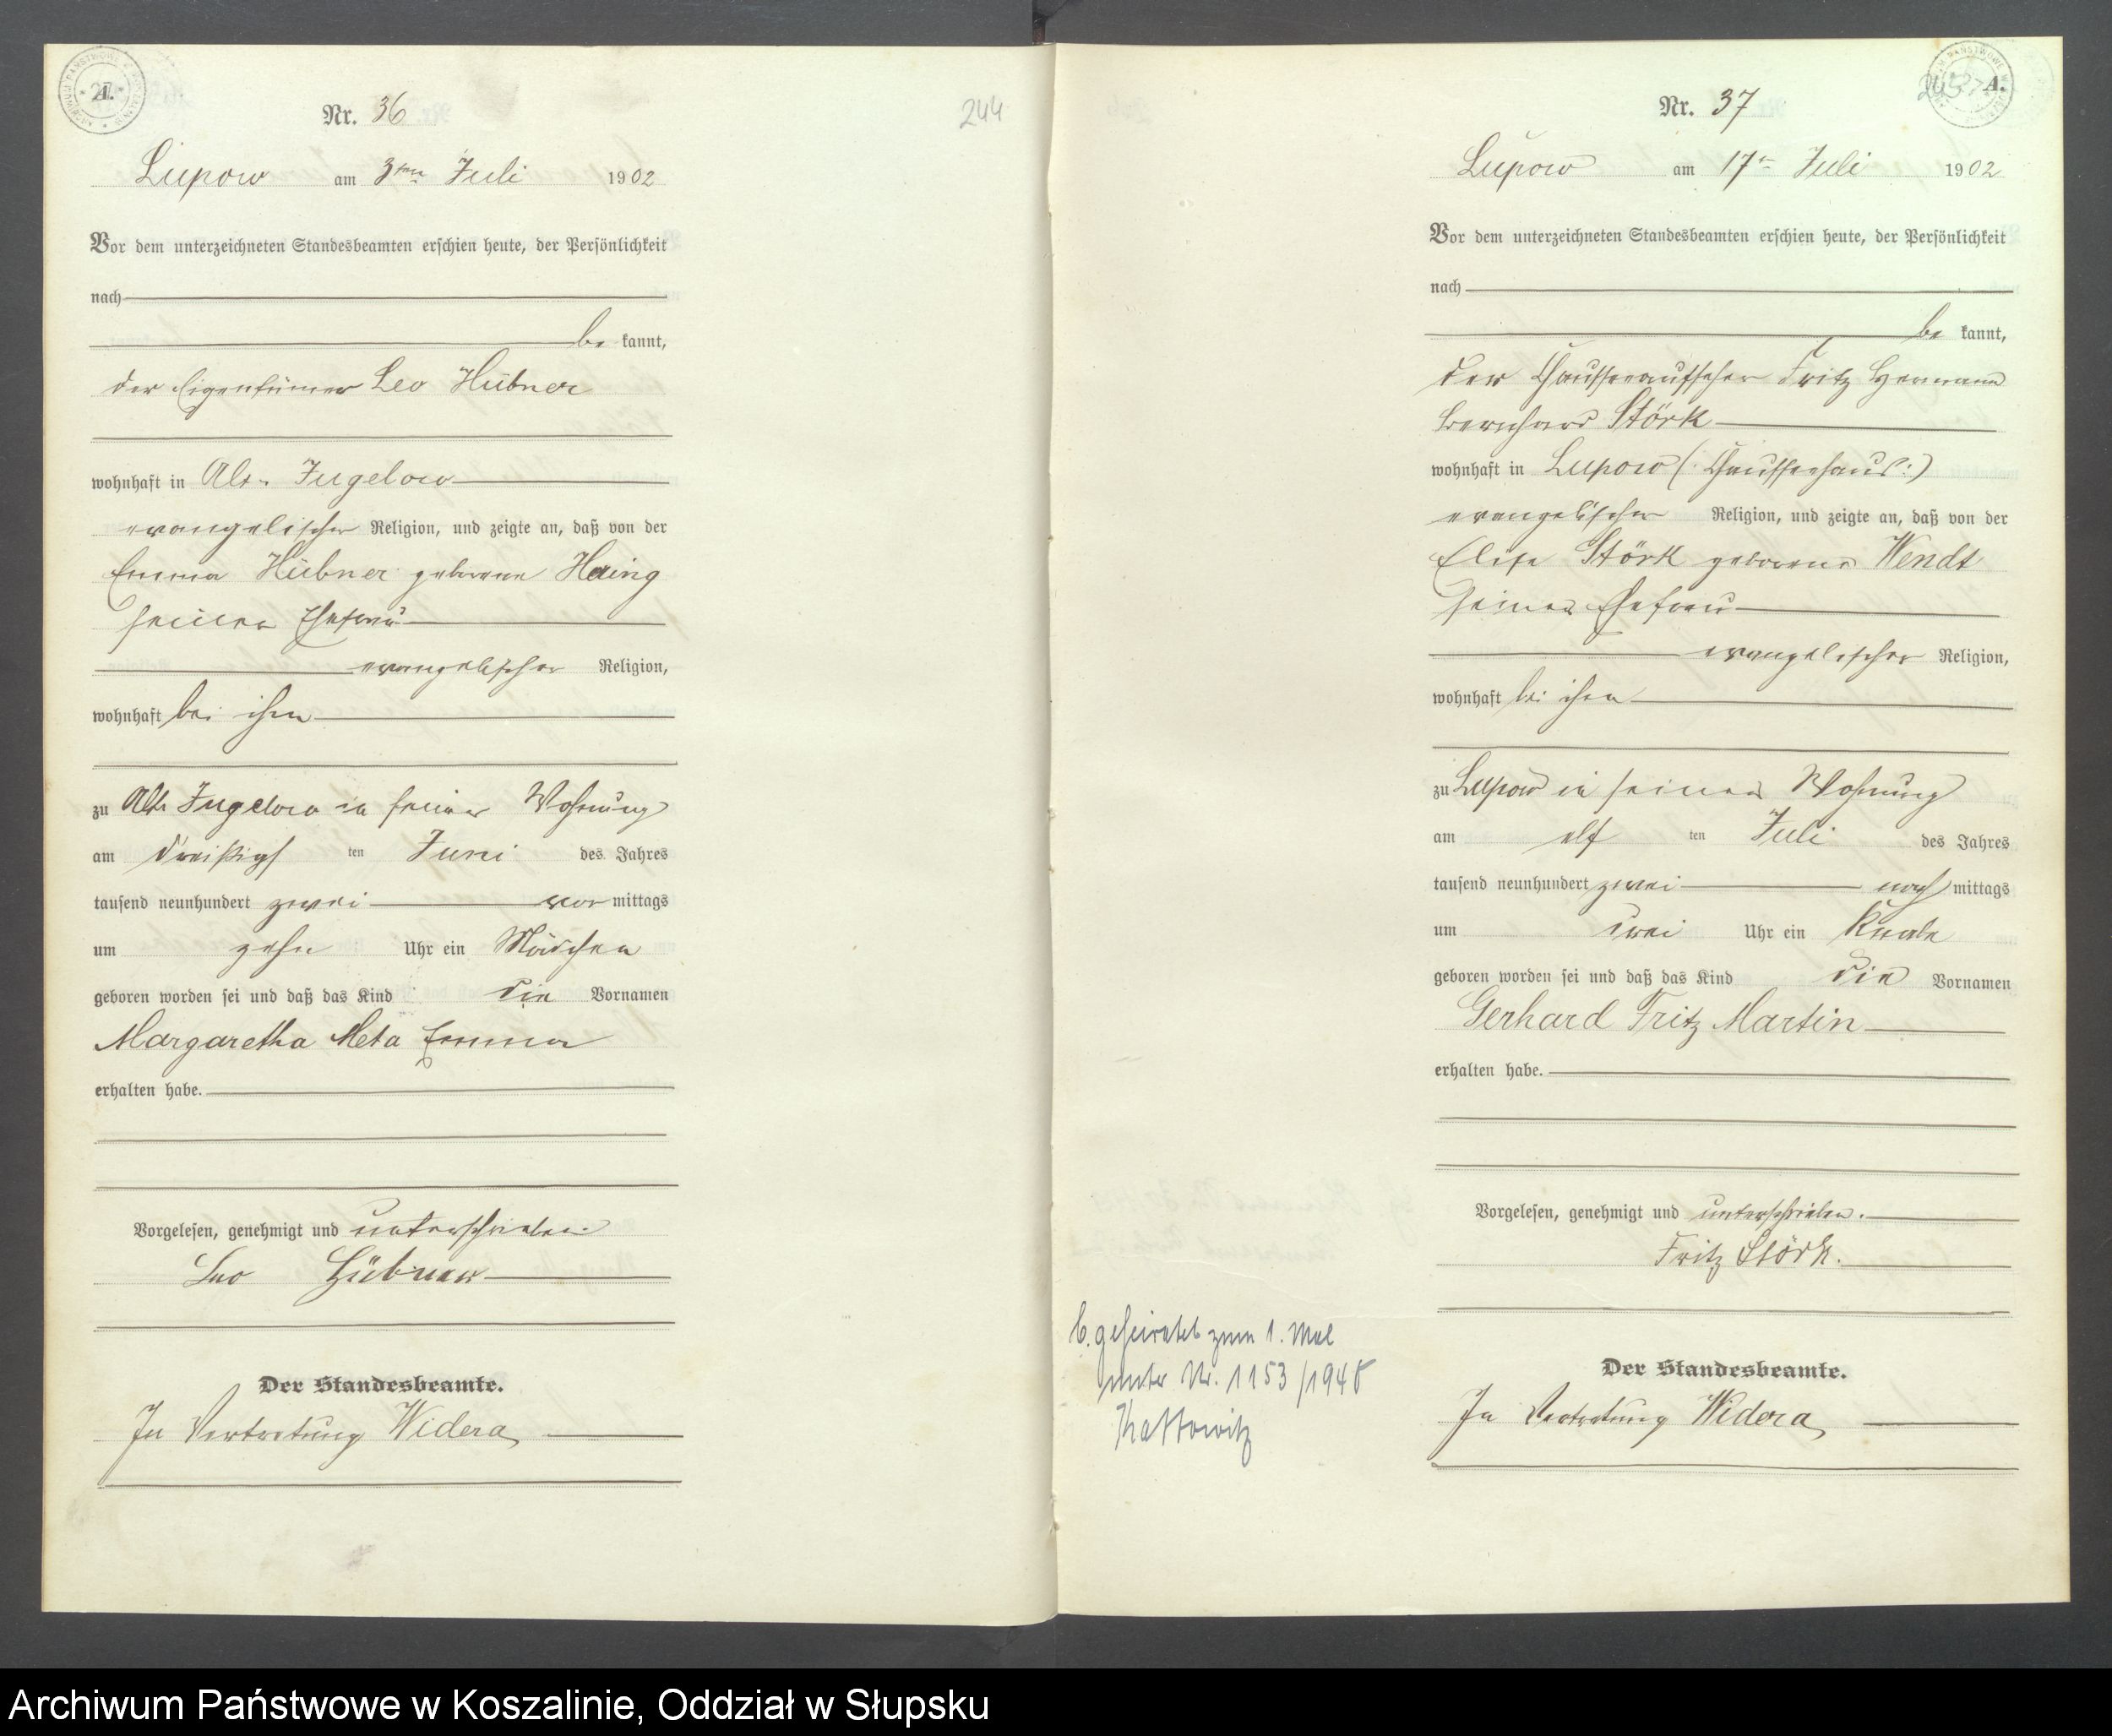 A.
Nr. 36
244
Lupow am 3ten Juli 1902
Vor dem unterzeichneten Standesbeamten erschien heute, der Persönlichkeit
nach
be kannt,
der Eigentümer Leo Hübner
wohnhaft in Alt-Jugelow
evangelischer Religion, und zeigte an, daß von der
Emma Hübner geborene Haing
seiner Ehefrau
evangelischer Religion,
wohnhaft bei ihm
zu Alt Jugelow in seiner Wohnung
am dreißigsten Juni des Jahres
tausend neunhundert zwei vor mittags
um zehn Uhr ein Mädchen
geboren worden sei und daß das Kind die Vornamen
Margaretha Meta Emma
erhalten habe.
Vorgelesen, genehmigt und unterschrieben
Leo Hübner
Der Standesbeamte.
In Vertretung Widera
A.
Nr. 37
Lupow am 17ten Juli 1902
Vor dem unterzeichneten Standesbeamten erschien heute, der Persönlichkeit
nach
be kannt,
der Chausseeaufseher Fritz Hermann
Bernhard Störk
wohnhaft in Lupow (:Chausseehaus:)
evangelischer Religion, und zeigte an, daß von der
Elise Störk geborene Wendt
seiner Ehefrau
evangelischer Religion,
wohnhaft bei ihm
zu Lupow in seiner Wohnung
am elf ten Juli des Jahres
tausend neunhundert zwei nach mittags
um drei Uhr ein Knabe
geboren worden sei und daß das Kind die Vornamen
Gerhard Fritz Martin
erhalten habe.
Vorgelesen, genehmigt und unterschrieben.
Fritz Störk.
Der Standesbeamte.
In Vertretung Widera
geheiratet zum 1. Mal
unter Nr. 1153/194
Kattowitz
Archiwum Państwowe w Koszalinie, Oddział w Słupsku